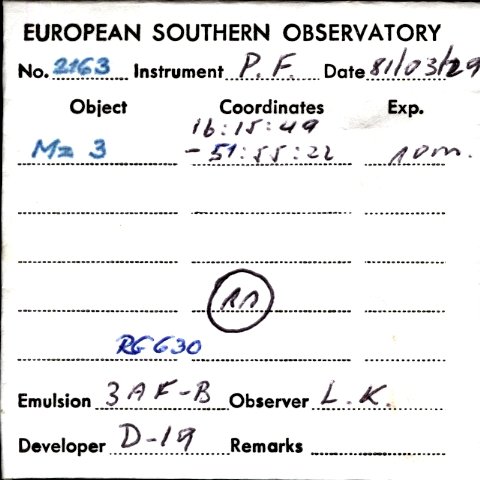 EUROPEAN SOUTHERN OBSERVATORY
No. 2163 Instrument P.F. Date 81/03/29
Object Coordinates Exp.
16:15:49
Mz 3 -51:55:22 10m.
11
RG630
Emulsion 3AF-B Observer L.K.
Developer D-19 Remarks